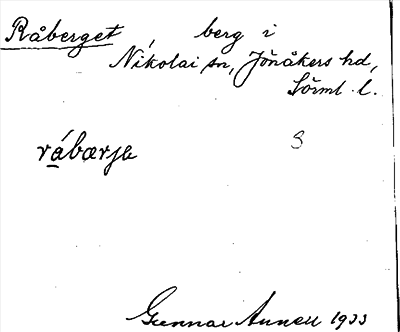 Råberget, berg i
Nikolai sn, Jönåkers hd,
Sörml. l.
rábærjɛ
S
Gunnar 1933